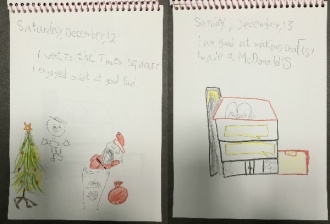 Saturday, December, 12
I went to the Times Square
I enjoyed a lot at good time
Sunday, December, 13
I am good at making
I made a McDonald's